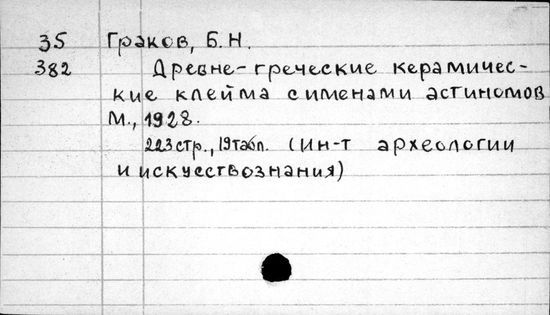 35 Граков, Б.Н.
382 Древне-греческие керамичес-
кие клейма с именами астиномов
М., 1928.
223 стр., 19 табл. (Ин-т археологии
и искусствознания)